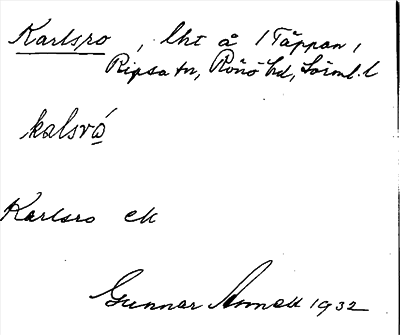 Karlsro, lht å 1 Täppan,
Ripsa sn, Rönö hd, Sörml. l
kalsrò
Karlsro ek
Gunnar 1932